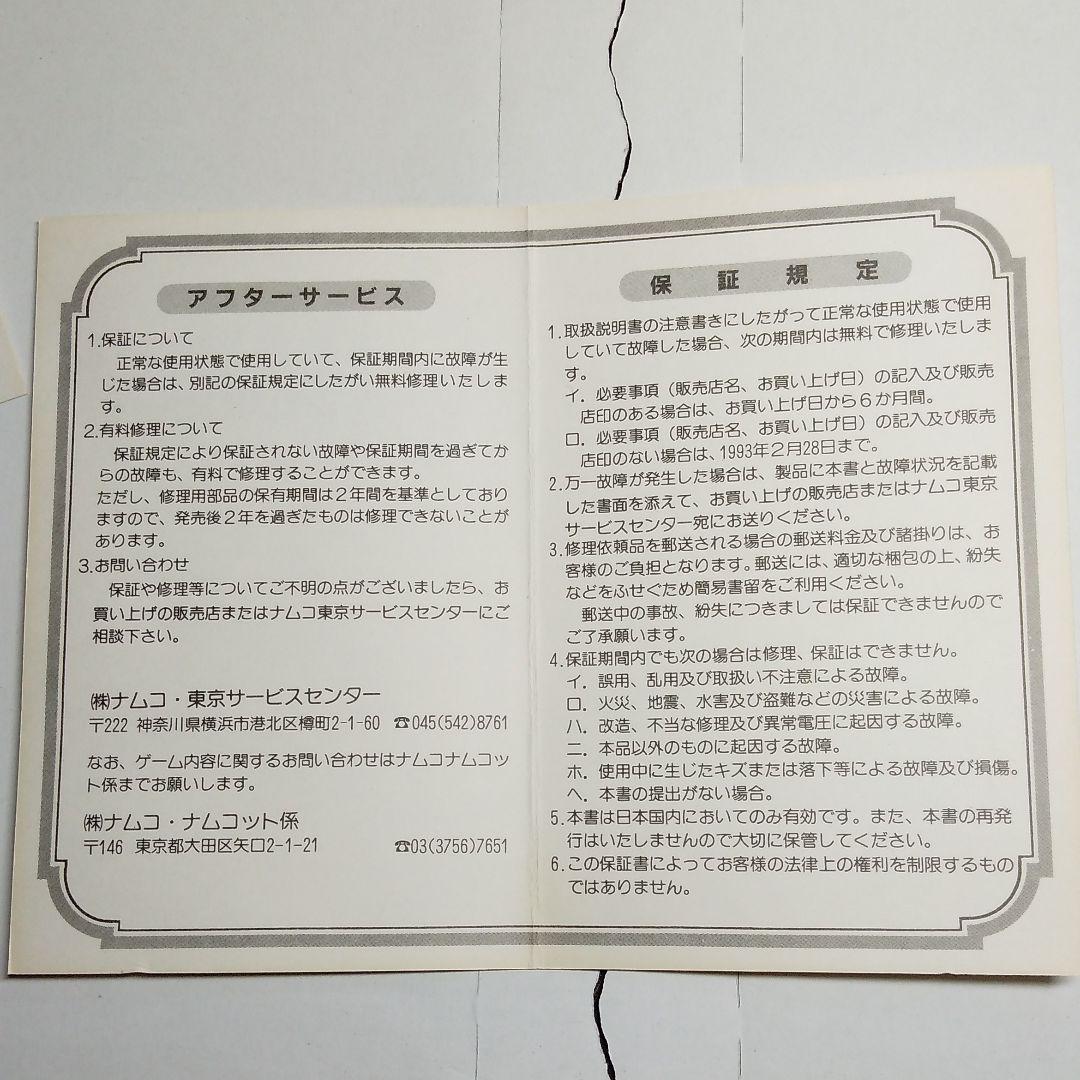 アフターサービス
1.保証について
正常な使用状態で使用していて、保証期間内に故障が生
じた場合は、別記の保証規定にしたがい無料修理いたしま
す。
2.有料修理について
保証規定により保証されない故障や保証期間を過ぎてか
らの故障も、有料で修理することができます。
ただし、修理用部品の保有期間は2年間を基準としており
ますので、発売後2年を過ぎたものは修理できないことが
あります。
3.お問い合わせ
保証や修理等についてご不明の点がございましたら、お
買い上げの販売店またはナムコ東京サービスセンターにご
相談下さい。
㈱ナムコ・東京サービスセンター
〒222 神奈川県横浜市港北区樽町2-1-60 ☎045(542)8761
なお、ゲーム内容に関するお問い合わせはナムコナムコッ
ト係までお願いします。
㈱ナムコ・ナムコット係
〒146 東京都大田区矢口2-1-21 ☎03(3756)7651
保証規定
1.取扱説明書の注意書きにしたがって正常な使用状態で使用
していて故障した場合、次の期間内は無料で修理いたしま
す。
イ．必要事項（販売店名、お買い上げ日）の記入及び販売
店印のある場合は、お買い上げ日から6か月間。
ロ．必要事項（販売店名、お買い上げ日）の記入及び販売
店印のない場合は、1993年2月28日まで。
2.万一故障が発生した場合は、製品に本書と故障状況を記載
した書面を添えて、お買い上げの販売店またはナムコ東京
サービスセンター宛にお送りください。
3.修理依頼品を郵送される場合の郵送料金及び諸掛りは、お
客様のご負担となります。郵送には、適切な梱包の上、紛失
などをふせぐため簡易書留をご利用ください。
郵送中の事故、紛失につきましては保証できませんので
ご了承願います。
4.保証期間内でも次の場合は修理、保証はできません。
イ．誤用、乱用及び取扱い不注意による故障。
ロ．火災、地震、水害及び盗難などの災害による故障。
ハ．改造、不当な修理及び異常電圧に起因する故障。
ニ．本品以外のものに起因する故障。
ホ．使用中に生じたキズまたは落下等による故障及び損傷。
ヘ．本書の提出がない場合。
5.本書は日本国内においてのみ有効です。また、本書の再発
行はいたしませんので大切に保管してください。
6.この保証書によってお客様の法律上の権利を制限するもの
ではありません。